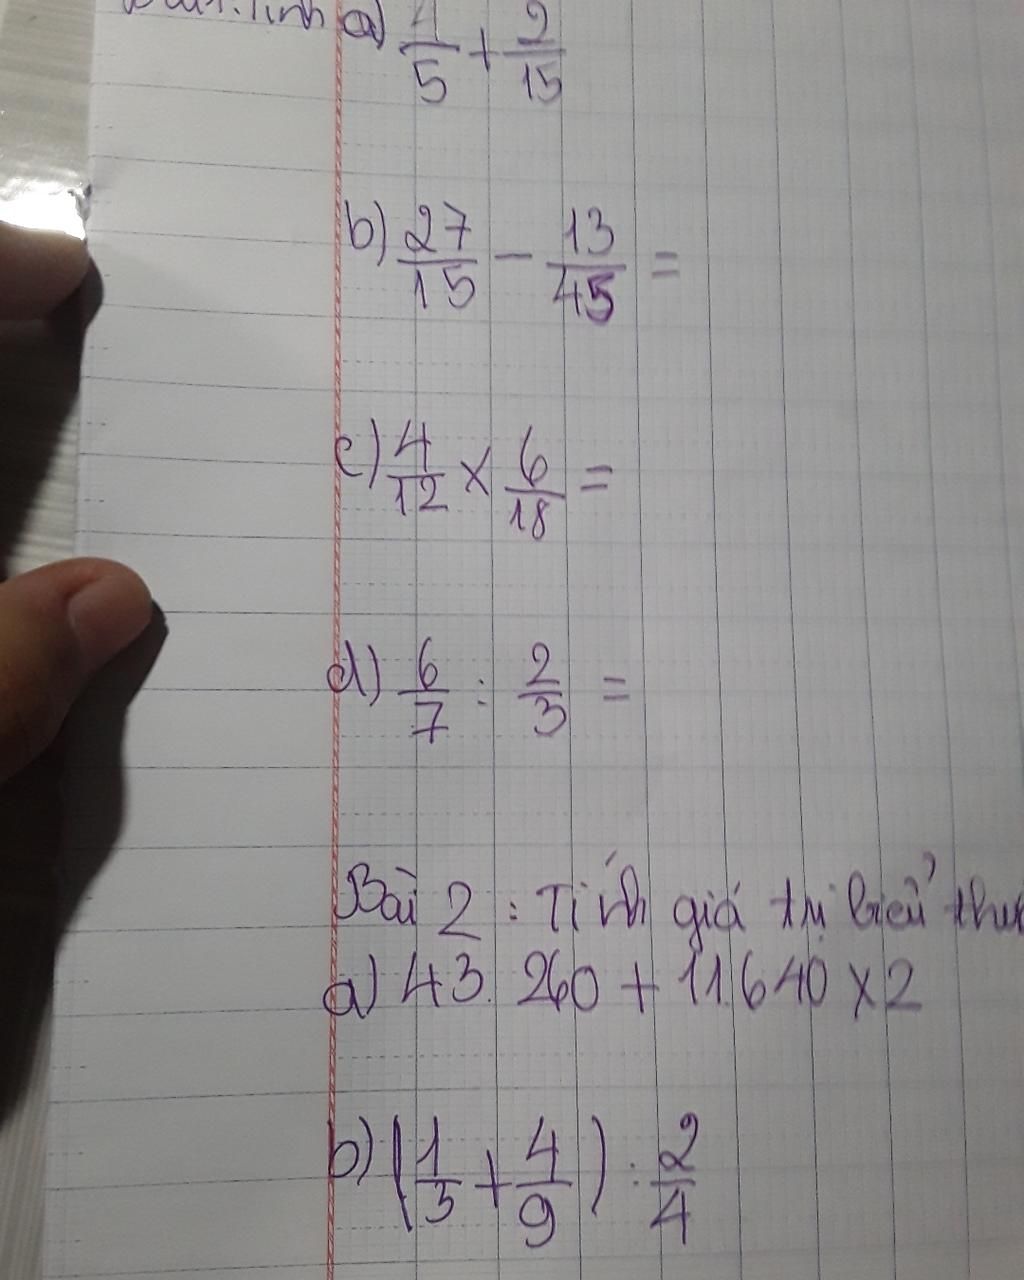 Bài 1: Tính a) 4/5 + 2/15
b) 27/15 - 13/45 =
c) 4/12 x 6/18 =
d) 6/7 : 2/3 =
Bài 2 : Tính giá trị biểu thức
a) 43.260 + 11.640 x 2
b) (1/3 + 4/9) : 2/4